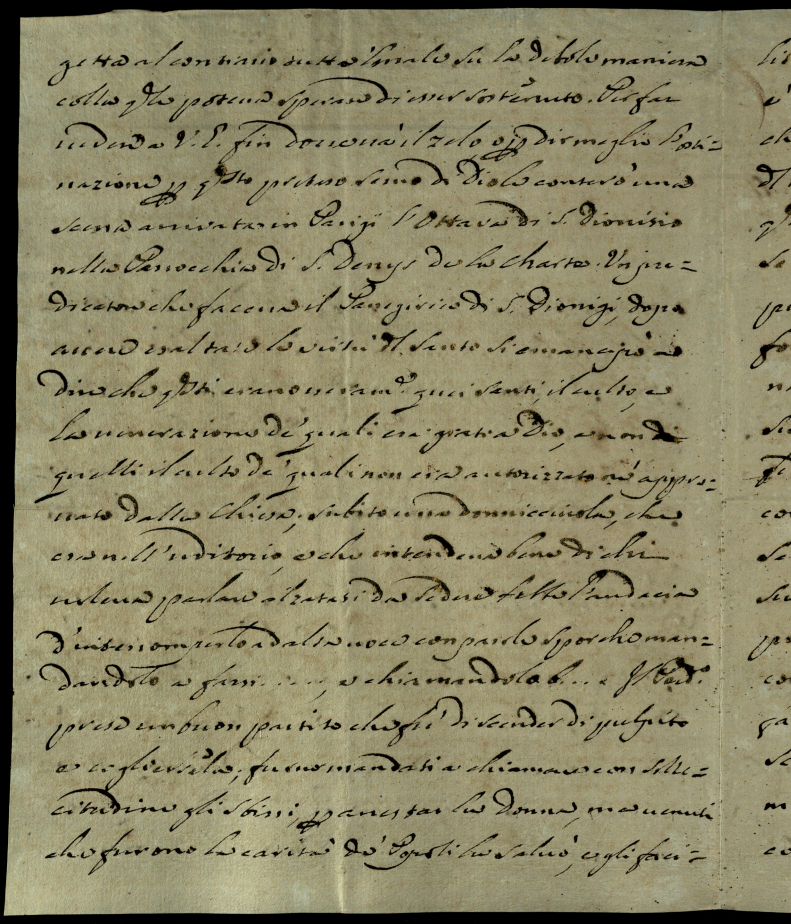 getta al contrario tutto l'male su la debole maniera
colla qle poteva sperare di esser sostenuto. Per far
vedere a V. E. fin dove và il zelo o p dir meglio l'osti=
nazione p qsto preteso servo di Dio le conterò una
scena arrivata in Parigi l'Ottava di S. Dionisio
nella Parocchia di S. Denys de la Chartre. Un pre=
dicatore che faceva il Panegirico di S. Dionigi, dopo
avere esaltate le virtù dl Santo si emancipò a
dire che qsti erano veramte. quei santi, il culto, e
la venerazione de' quali era grata a Dio, e non di
quelli il culto de' quali non era autorizzato nè appro=
vato dalla Chiesa; subito una donnicciuola, che
era nell'uditorio, e che intendeva bene di chi
voleva parlare alzatasi da sedere ebbe l'audacia
d'interromperlo ad alta voce con parole sporche man=
dandolo a farsi ...., e chiamandolo b.... Il Pred.e
prese un buon partito che fù di scender di pulpito
e; furno mandati a chiamare con solle=
citudine gli sbirri, p arrestar la Donna, ma venuti
che furono la carità de' la salvò, e gli feci=